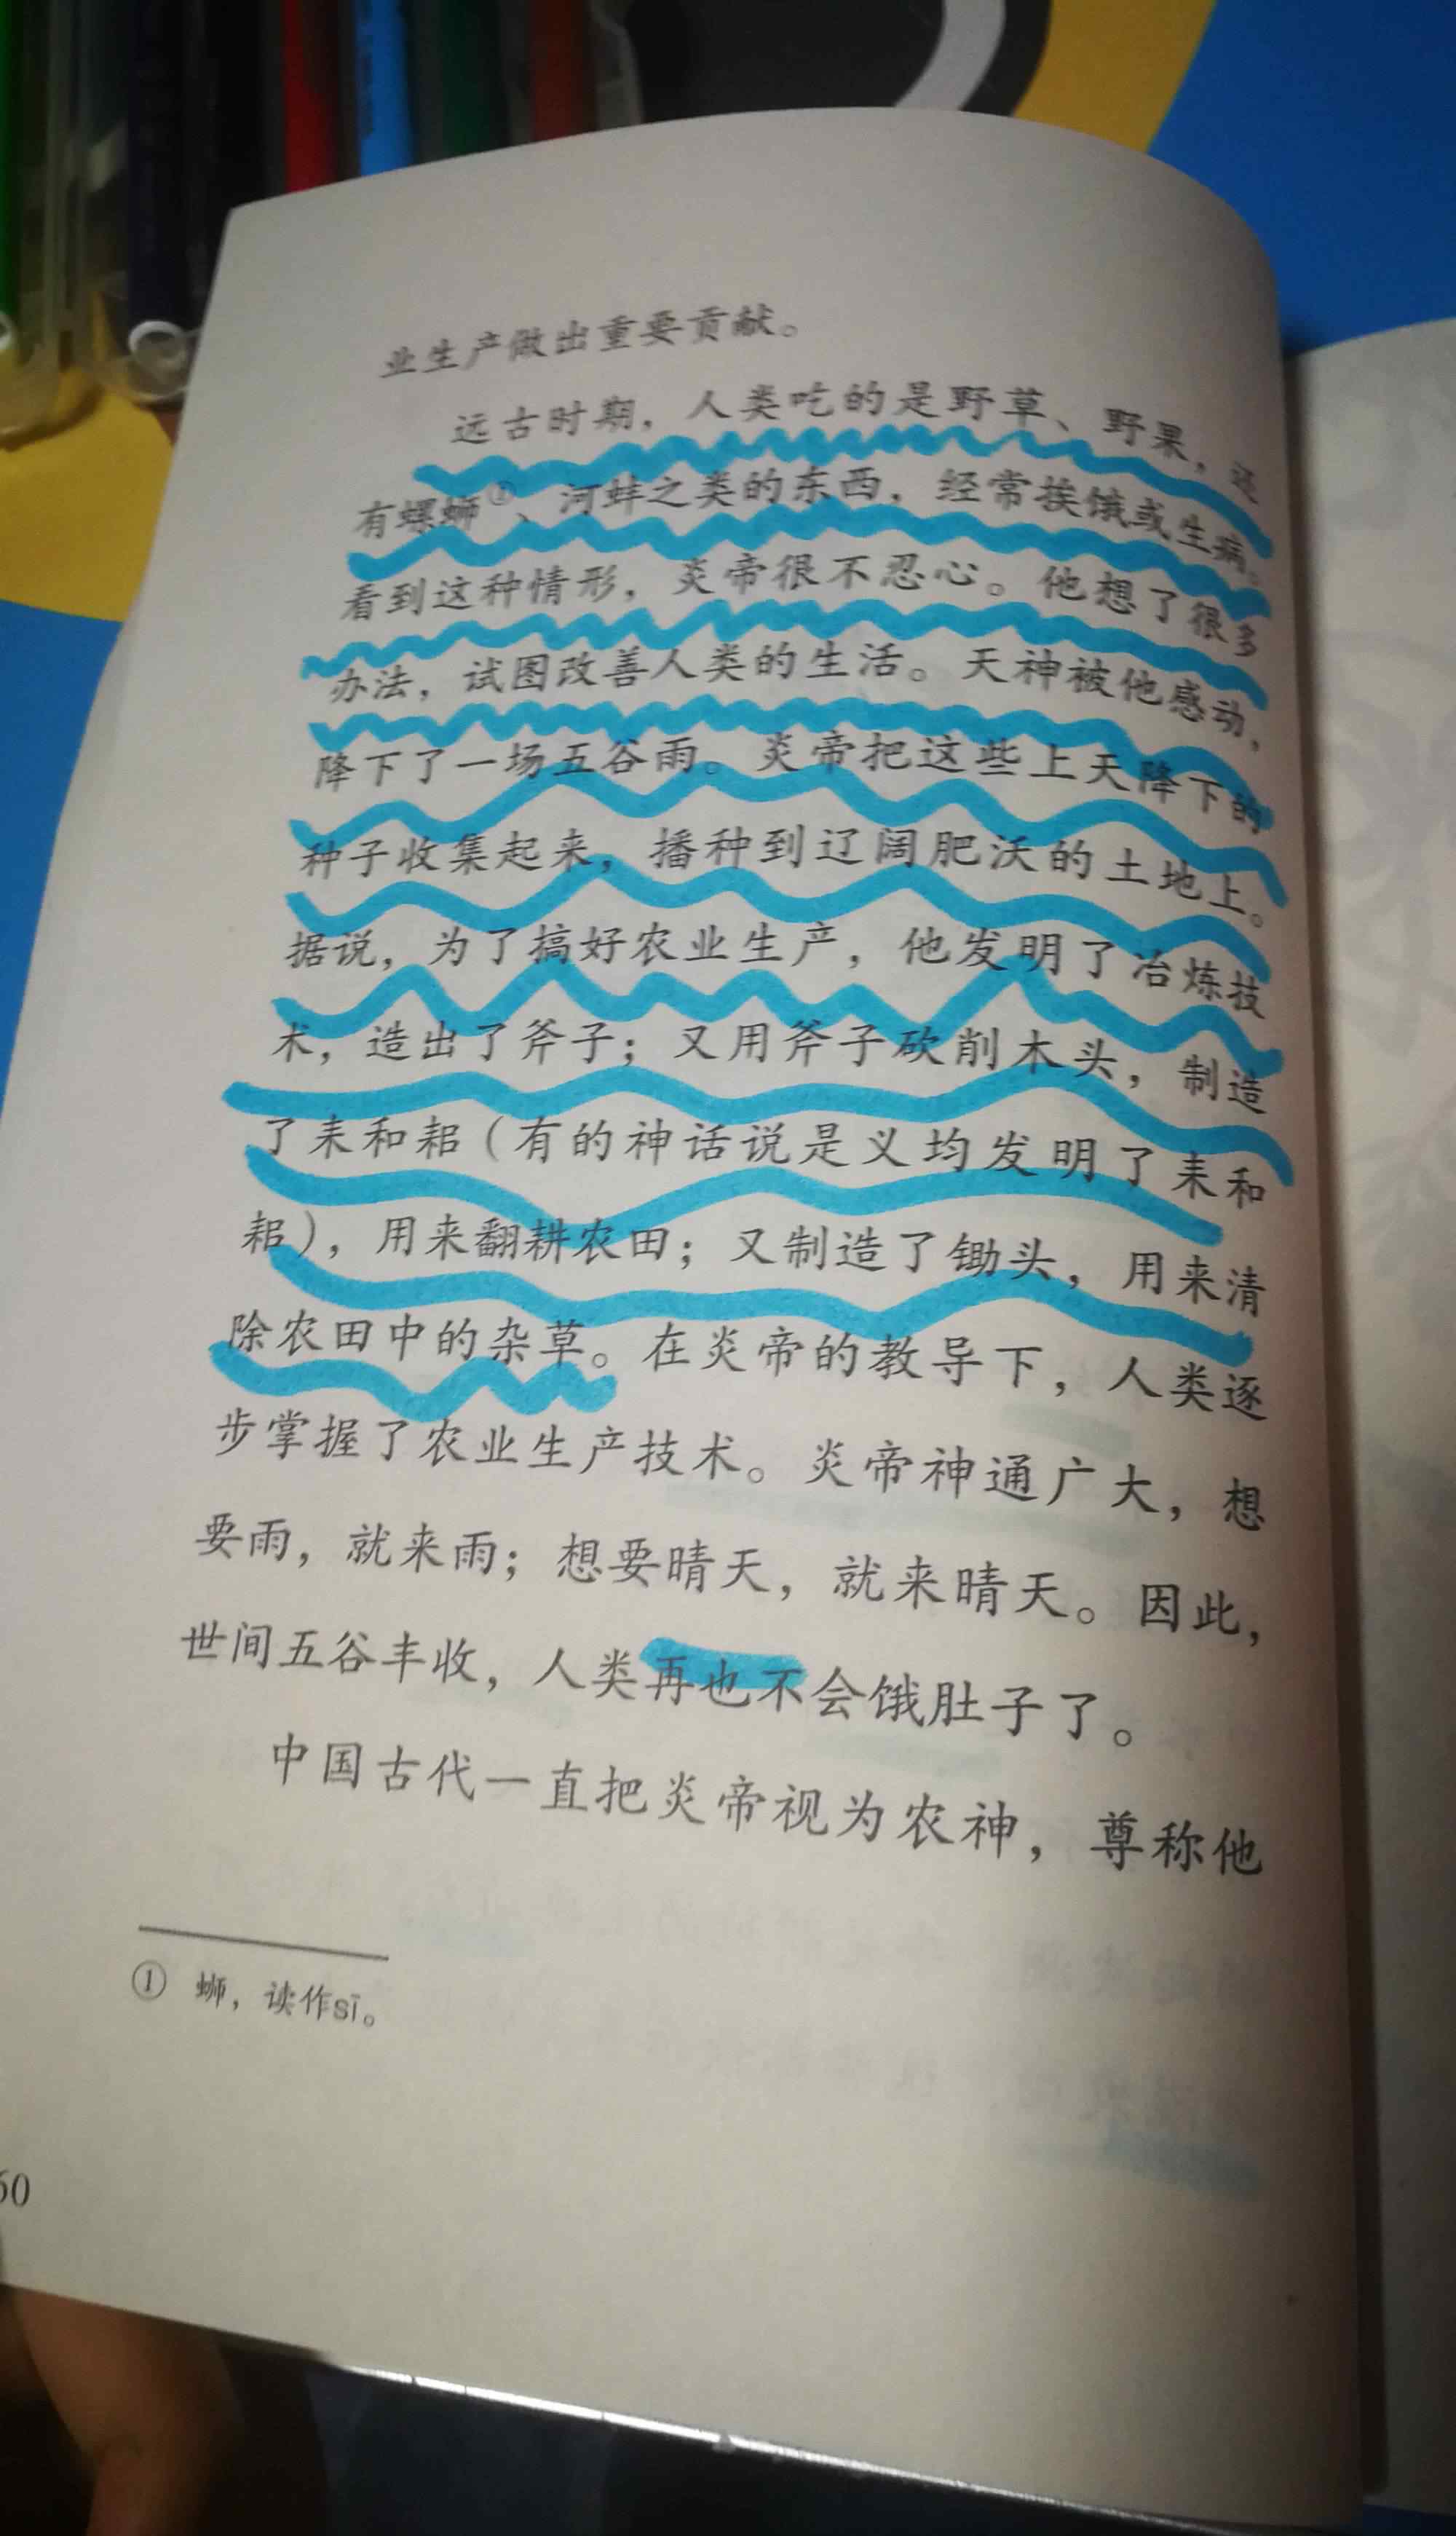 业生产做出重要贡献。
远古时期，人类吃的是野草、野果，还
有螺蛳①、河蚌之类的东西，经常挨饿或生病。
看到这种情形，炎帝很不忍心。他想了很多
办法，试图改善人类的生活。天神被他感动，
降下了一场五谷雨。炎帝把这些上天降下的
种子收集起来，播种到辽阔肥沃的土地上。
据说，为了搞好农业生产，他发明了冶炼技
术，造出了斧子；又用斧子砍削木头，制造
了耒和耜（有的神话说是义均发明了耒和
耜），用来翻耕农田；又制造了锄头，用来清
除农田中的杂草。在炎帝的教导下，人类逐
步掌握了农业生产技术。炎帝神通广大，想
要雨，就来雨；想要晴天，就来晴天。因此，
世间五谷丰收，人类再也不会饿肚子了。
中国古代一直把炎帝视为农神，尊称他
① 蛳，读作sī。
60